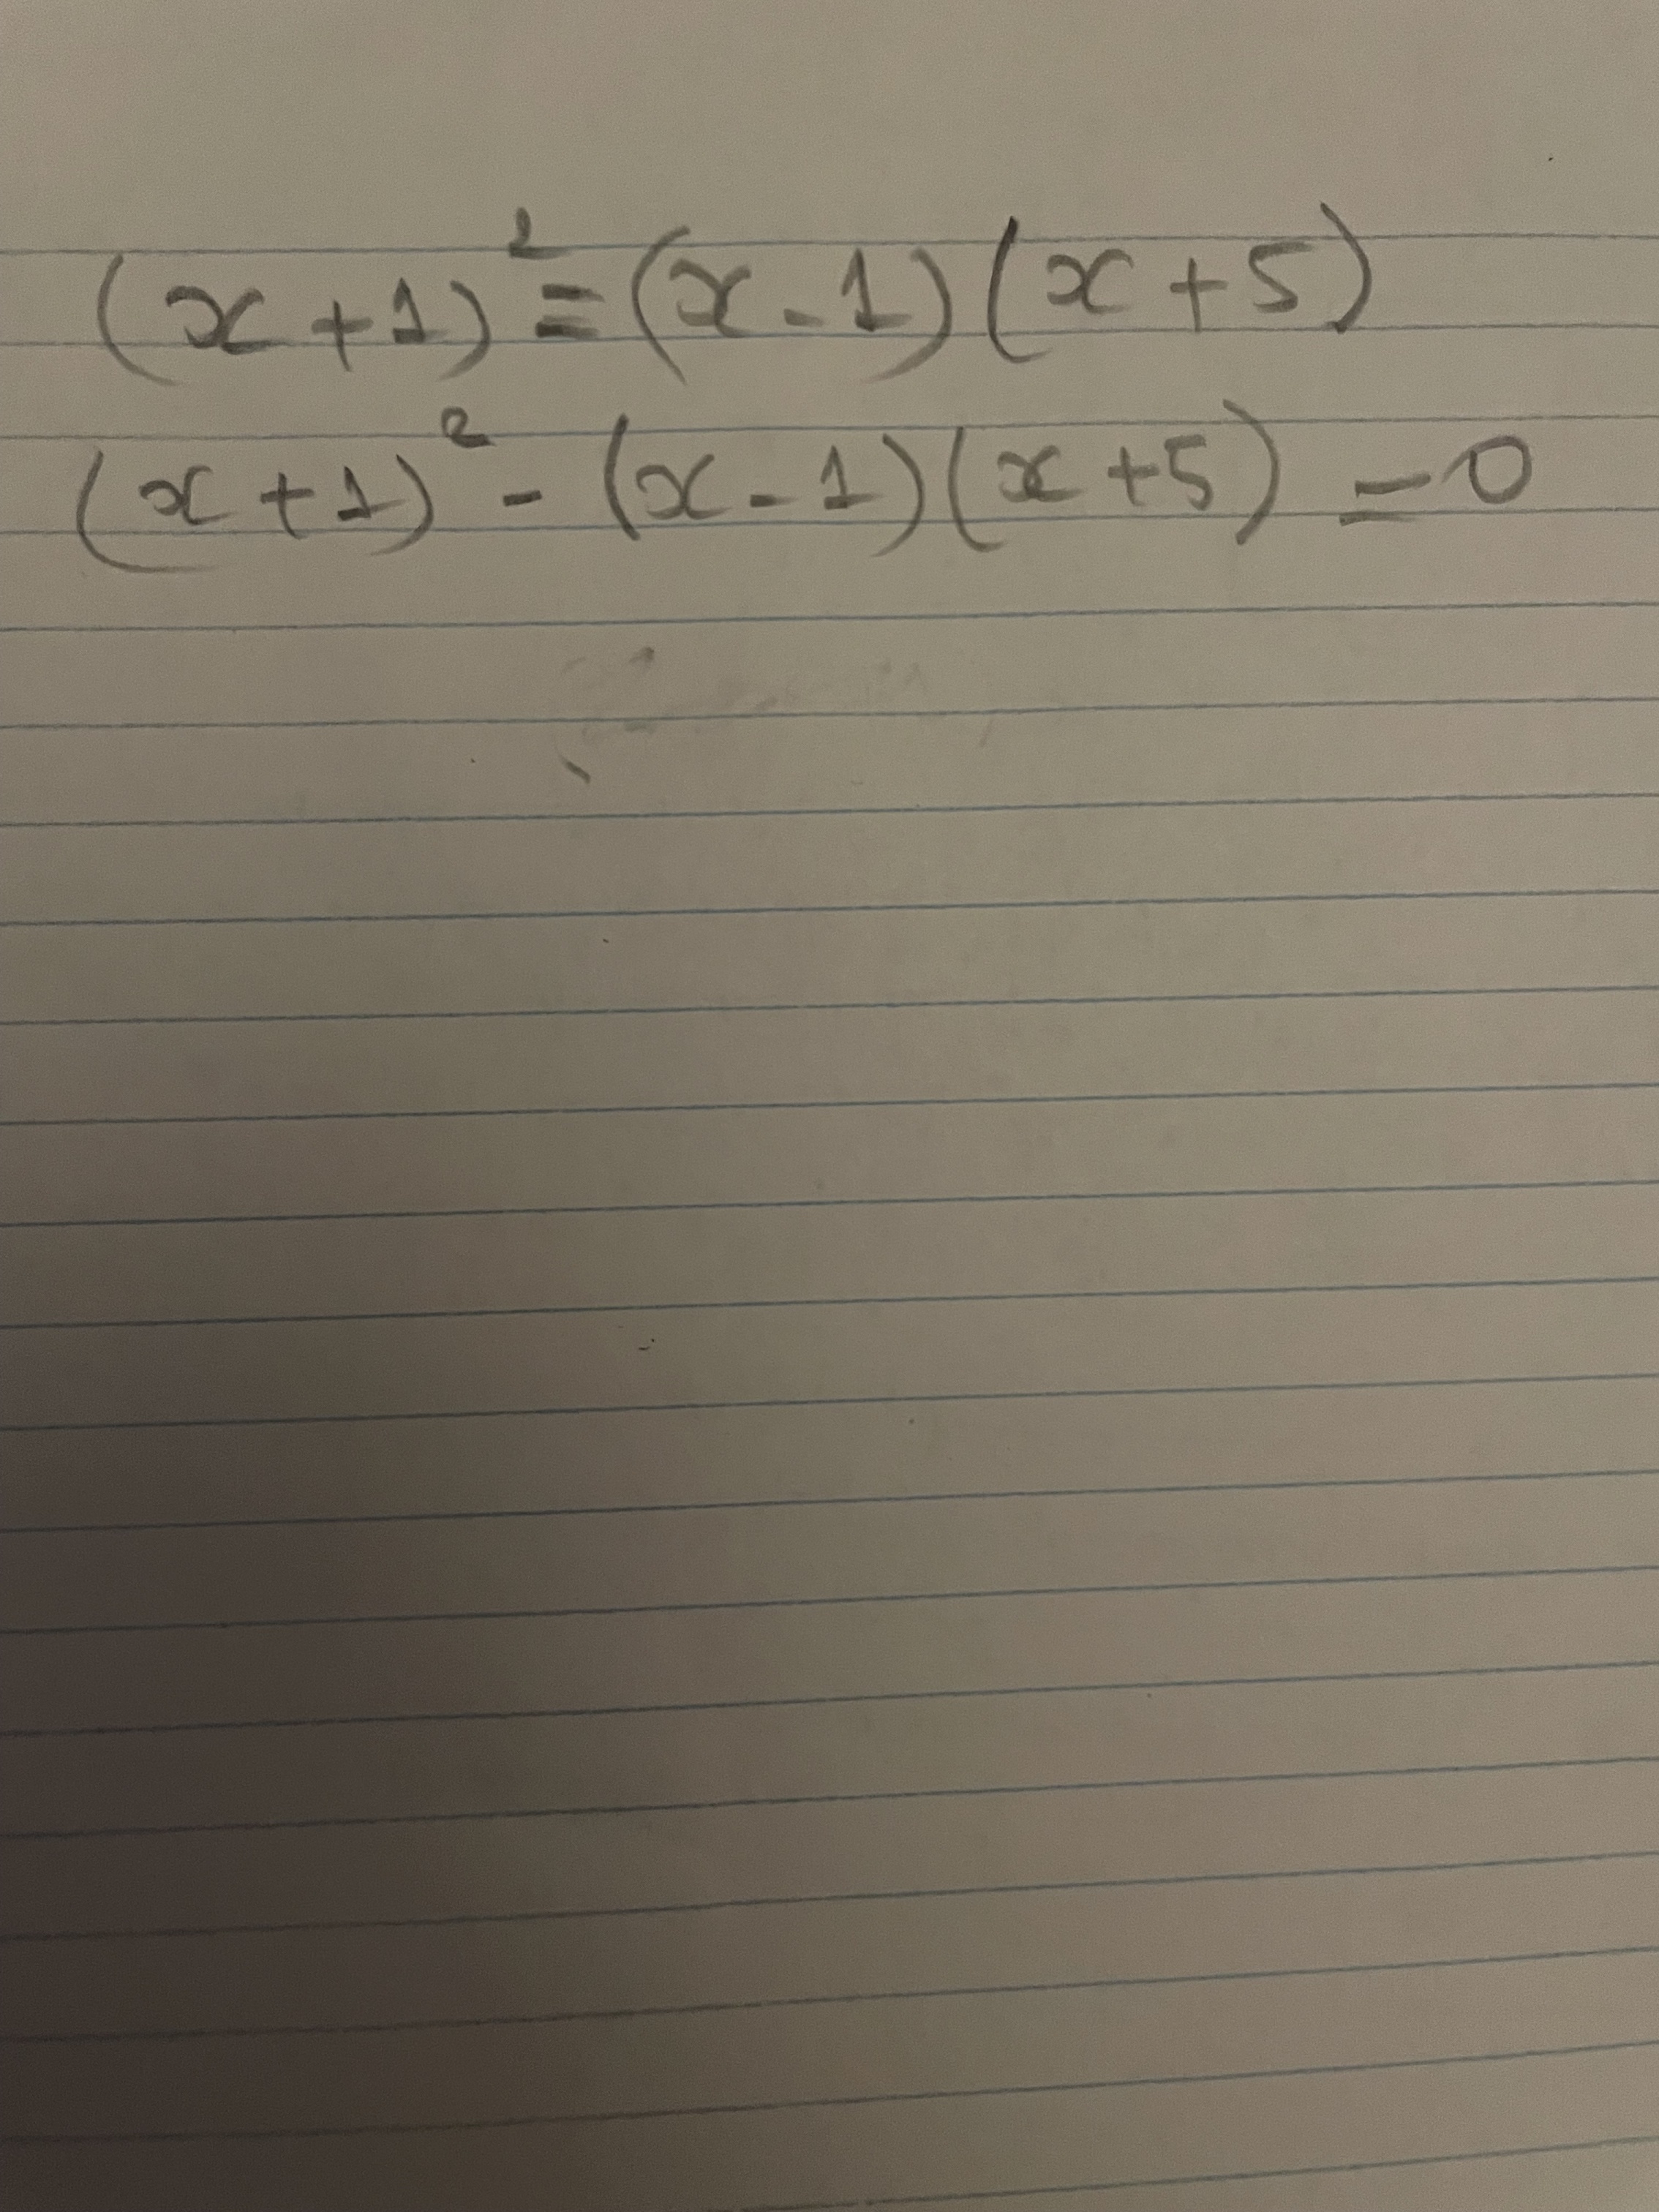 (x+1)²=(x-1)(x+5)
(x+1)² - (x-1)(x+5) = 0